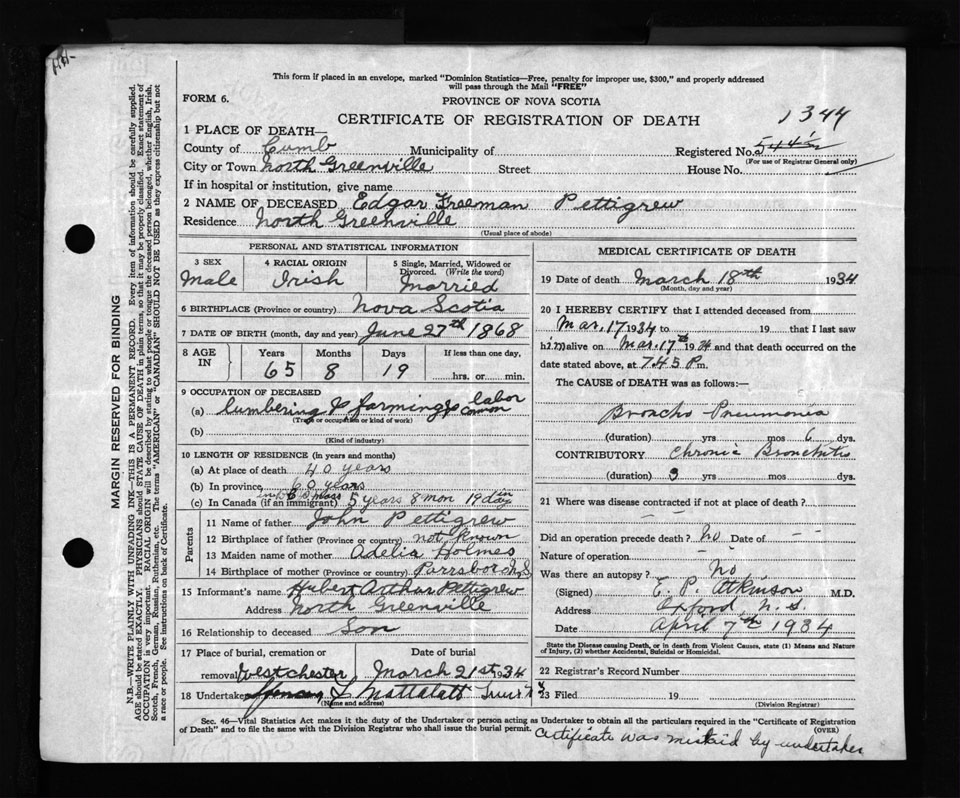 This form if placed in an envelope, marked "Dominion Statistics—Free, penalty for improper use, $300," and properly addressed
will pass through the Mail "FREE"
FORM 6.
PROVINCE OF NOVA SCOTIA
1344
CERTIFICATE OF REGISTRATION OF DEATH
1 PLACE OF DEATH—
County of Cumb Municipality of Registered No.
(For use of Registrar General only)
City or Town North Greenville Street House No.
If in hospital or institution, give name
2 NAME OF DECEASED Edgar Freeman Pettigrew
Residence North Greenville
(Usual place of abode)
PERSONAL AND STATISTICAL INFORMATION
3 SEX 4 RACIAL ORIGIN 5 Single, Married, Widowed or
Divorced. (Write the word)
Male Irish Married
6 BIRTHPLACE (Province or country) Nova Scotia
7 DATE OF BIRTH (month, day and year) June 27th 1868
8 AGE IN Years Months Days If less than one day,
65 8 19 hrs. or min.
9 OCCUPATION OF DECEASED
(a) Lumbering & farming & common labor
(Trade or occupation or kind of work)
(b)
(Kind of industry)
10 LENGTH OF RESIDENCE (in years and months)
(a) At place of death 40 years
(b) In province 60 years
(c) In Canada (if an immigrant) 5 years 8 mon 19 day
Parents
11 Name of father John Pettigrew
12 Birthplace of father (Province or country) not known
13 Maiden name of mother Adelia Holmes
14 Birthplace of mother (Province or country) Parrsboro N.S.
15 Informant's name Hubert Arthur Pettigrew
Address North Greenville
16 Relationship to deceased Son
17 Place of burial, cremation or Date of burial
removal Westchester March 21st 1934
18 Undertaker
(Name and address)
MEDICAL CERTIFICATE OF DEATH
19 Date of death March 18th 1934
(Month, day and year)
20 I HEREBY CERTIFY that I attended deceased from
Mar. 17 1934 to 19 that I last saw
h alive on Mar. 17th 1934 and that death occurred on the
date stated above, at 7.45 P m.
The CAUSE OF DEATH was as follows:—
Broncho Pneumonia
(duration) yrs mos 6 dys.
CONTRIBUTORY Chronic Bronchitis
(duration) 3 yrs mos dys.
21 Where was disease contracted if not at place of death?
Did an operation precede death? No Date of
Nature of operation
Was there an autopsy? No
(Signed) E. P. Atkinson M.D.
Address Oxford, N.S.
Date April 7th 1934
State the Disease causing Death, or in death from Violent Causes, state (1) Means and Nature
of Injury, (2) whether Accidental, Suicidal or Homicidal.
22 Registrar's Record Number
23 Filed 19
(Division Registrar)
Sec. 46—Vital Statistics Act makes it the duty of the Undertaker or person acting as Undertaker to obtain all the particulars required in the "Certificate of Registration
of Death" and to file the same with the Division Registrar who shall issue the burial permit.
(OVER)
Certificate was mislaid by undertaker
MARGIN RESERVED FOR BINDING
N.B.—WRITE PLAINLY WITH UNFADING INK—THIS IS A PERMANENT RECORD. Every item of information should be carefully supplied.
AGE should be stated EXACTLY. PHYSICIANS should STATE CAUSE OF DEATH in plain terms, so that it may be properly classified. Exact statement of
OCCUPATION is very important. RACIAL ORIGIN will be described by stating to what people or tongue the deceased person belonged, whether English, Irish,
Scotch, French, German, Russian, Ruthenian, etc. The terms "AMERICAN" or "CANADIAN" SHOULD NOT BE USED as they express citizenship but not
a race or people. See instructions on back of Certificate.